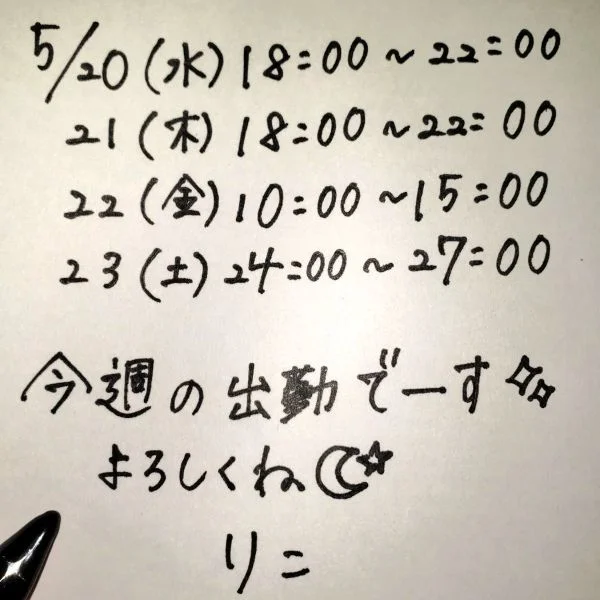 5/20(水)18:00~22:00
21(木)18:00~22:00
22(金)10:00~15:00
23(土)24:00~27:00
今週の出勤でーす✨
よろしくね☾☆
りこ